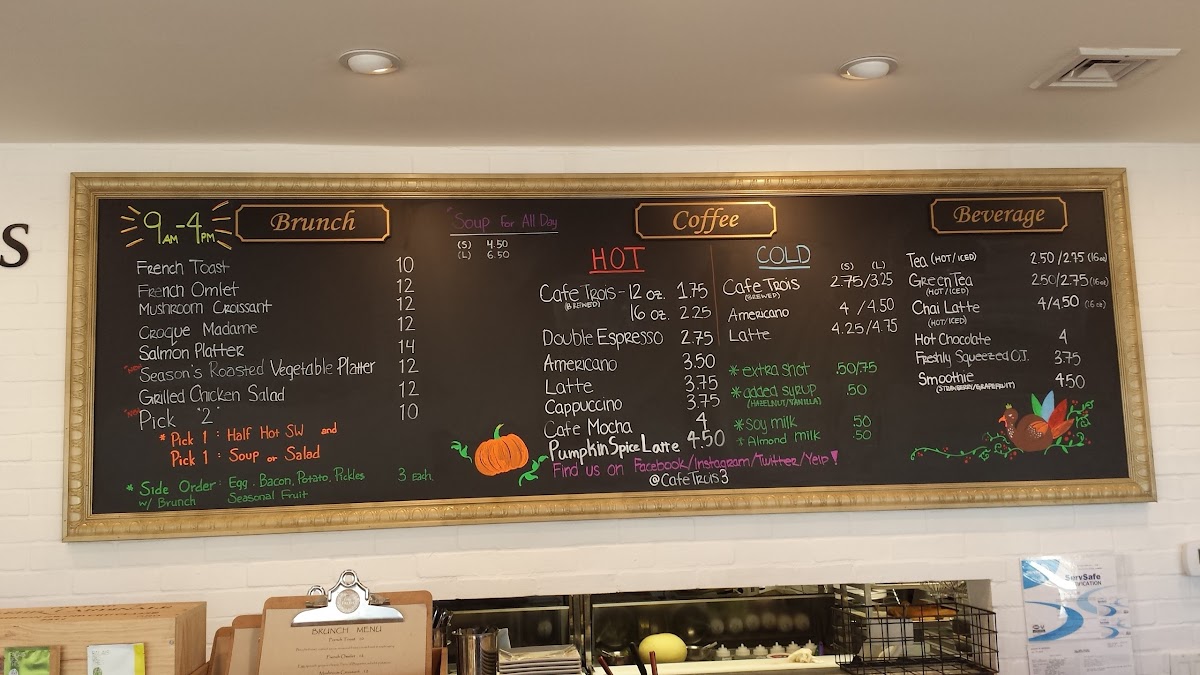 s
9AM-4PM
Brunch
French Toast 10
French Omlet 12
Mushroom Croissant 12
Croque Madame 12
Salmon Platter 14
NEW Season's Roasted Vegetable Platter 12
Grilled Chicken Salad 12
NEW Pick "2" 10
* Pick 1 : Half Hot SW and
Pick 1 : Soup or Salad
* Side Order : Egg, Bacon, Potato, Pickles 3 Each.
w/ Brunch Seasonal Fruit
Soup for All Day
(S) 4.50
(L) 6.50
Coffee
HOT
Cafe Trois - 12 oz. 1.75
(BREWED)
16 oz. 2.25
Double Espresso 2.75
Americano 3.50
Latte 3.75
Cappuccino 3.75
Cafe Mocha 4
Pumpkin Spice Latte 4.50
COLD
(S) (L)
Cafe Trois 2.75/3.25
(BREWED)
Americano 4 / 4.50
Latte 4.25/4.75
* extra shot .50/.75
* added syrup .50
(HAZELNUT/VANILLA)
* Soy milk .50
* Almond milk .50
Find us on Facebook/Instagram/Twitter/Yelp!
@CafeTrois3
Beverage
Tea (HOT/ICED) 2.50/2.75 (16oz)
Green Tea 2.50/2.75 (16oz)
(HOT/ICED)
Chai Latte 4/4.50 (16oz)
(HOT/ICED)
Hot Chocolate 4
Freshly Squeezed O.J. 3.75
Smoothie 4.50
(STRAWBERRY/GRAPEFRUIT)
BRUNCH MENU
French Toast
French Omlet
Mushroom Croissant
ServSafe